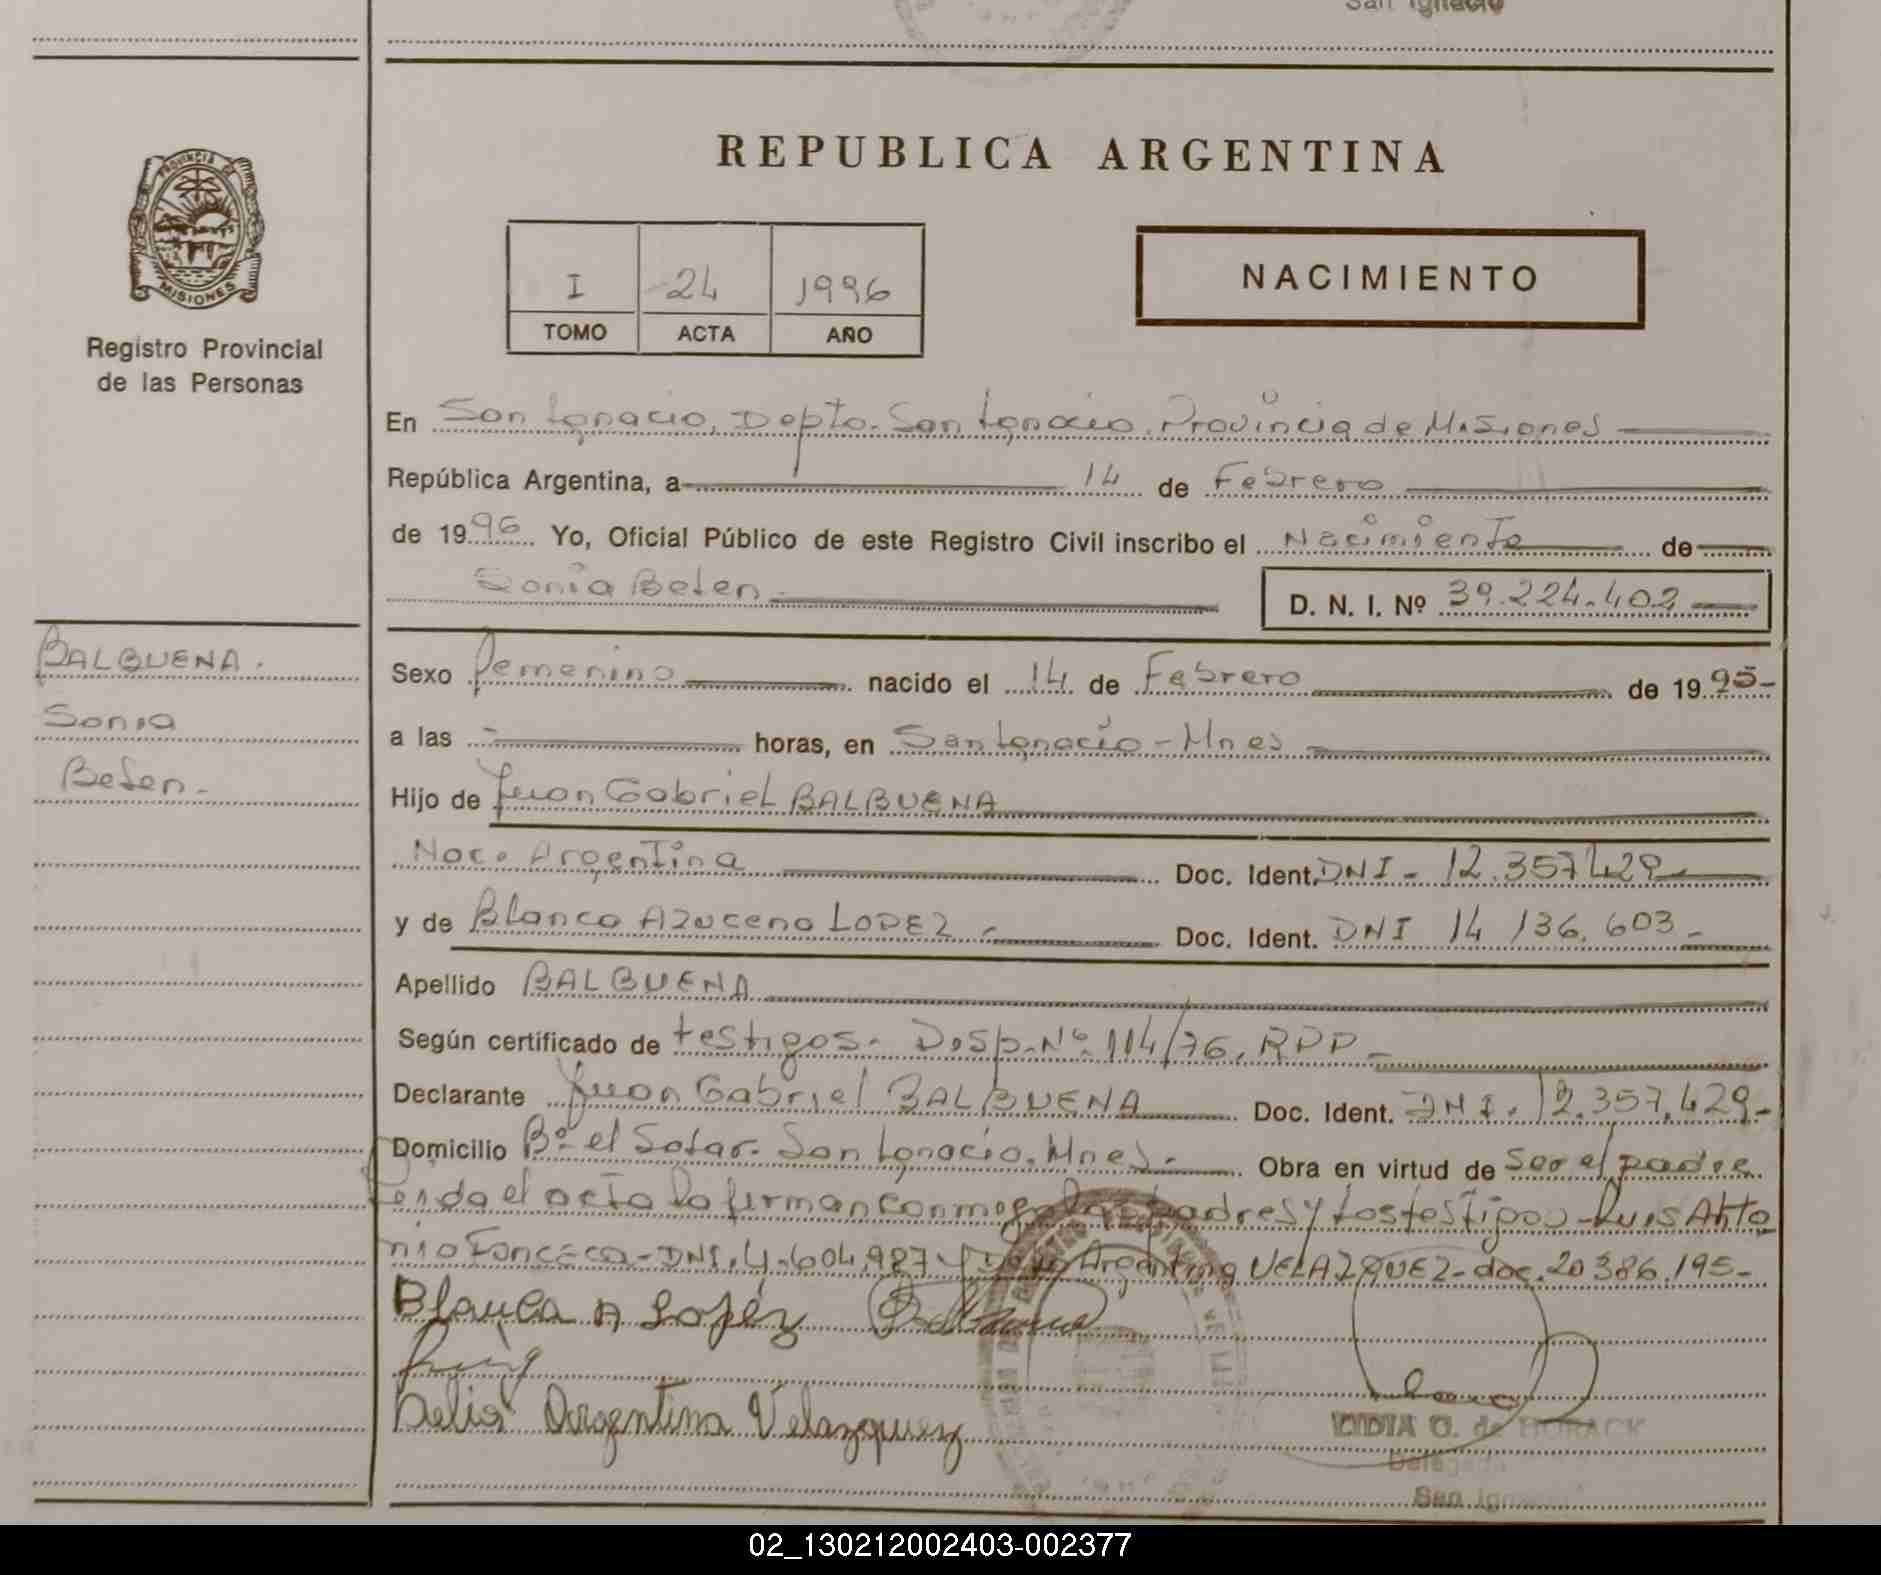 San Ignacio
REPUBLICA ARGENTINA
PROVINCIA DE
MISIONES
Registro Provincial
de las Personas
I 24 1996
TOMO ACTA AÑO
NACIMIENTO
En San Ignacio, Depto. San Ignacio. Provincia de Misiones
República Argentina, a 14 de Febrero
de 1996 Yo, Oficial Público de este Registro Civil inscribo el Nacimiento de
Sonia Belen
D. N. I. Nº 39.224.402
BALBUENA.
Sonia
Belen.
Sexo femenino nacido el 14 de Febrero de 1995
a las horas, en San Ignacio - Mnes
Hijo de Juan Gabriel BALBUENA
Nac. Argentina Doc. Ident. DNI - 12.357.429
y de Blanca Azucena LOPEZ - Doc. Ident. DNI 14 136.603 -
Apellido BALBUENA
Según certificado de testigos. Disp. Nº 114/76. RPP -
Declarante Juan Gabriel BALBUENA Doc. Ident. DNI. 12.357.429-
Domicilio Bº el Solar. San Ignacio. Mnes. Obra en virtud de ser el padre
Leida el acta la firman conmigo los padres y los testigos - Luis Anto
nio Fonceca - DNI. 4.604.987 y Argentina VELAZQUEZ - doc. 20 386.195-
Blanca A Lopéz
Delia Argentina Velazquez
LIDIA O. de HORACK
Delegada
San Ignacio
02_130212002403-002377